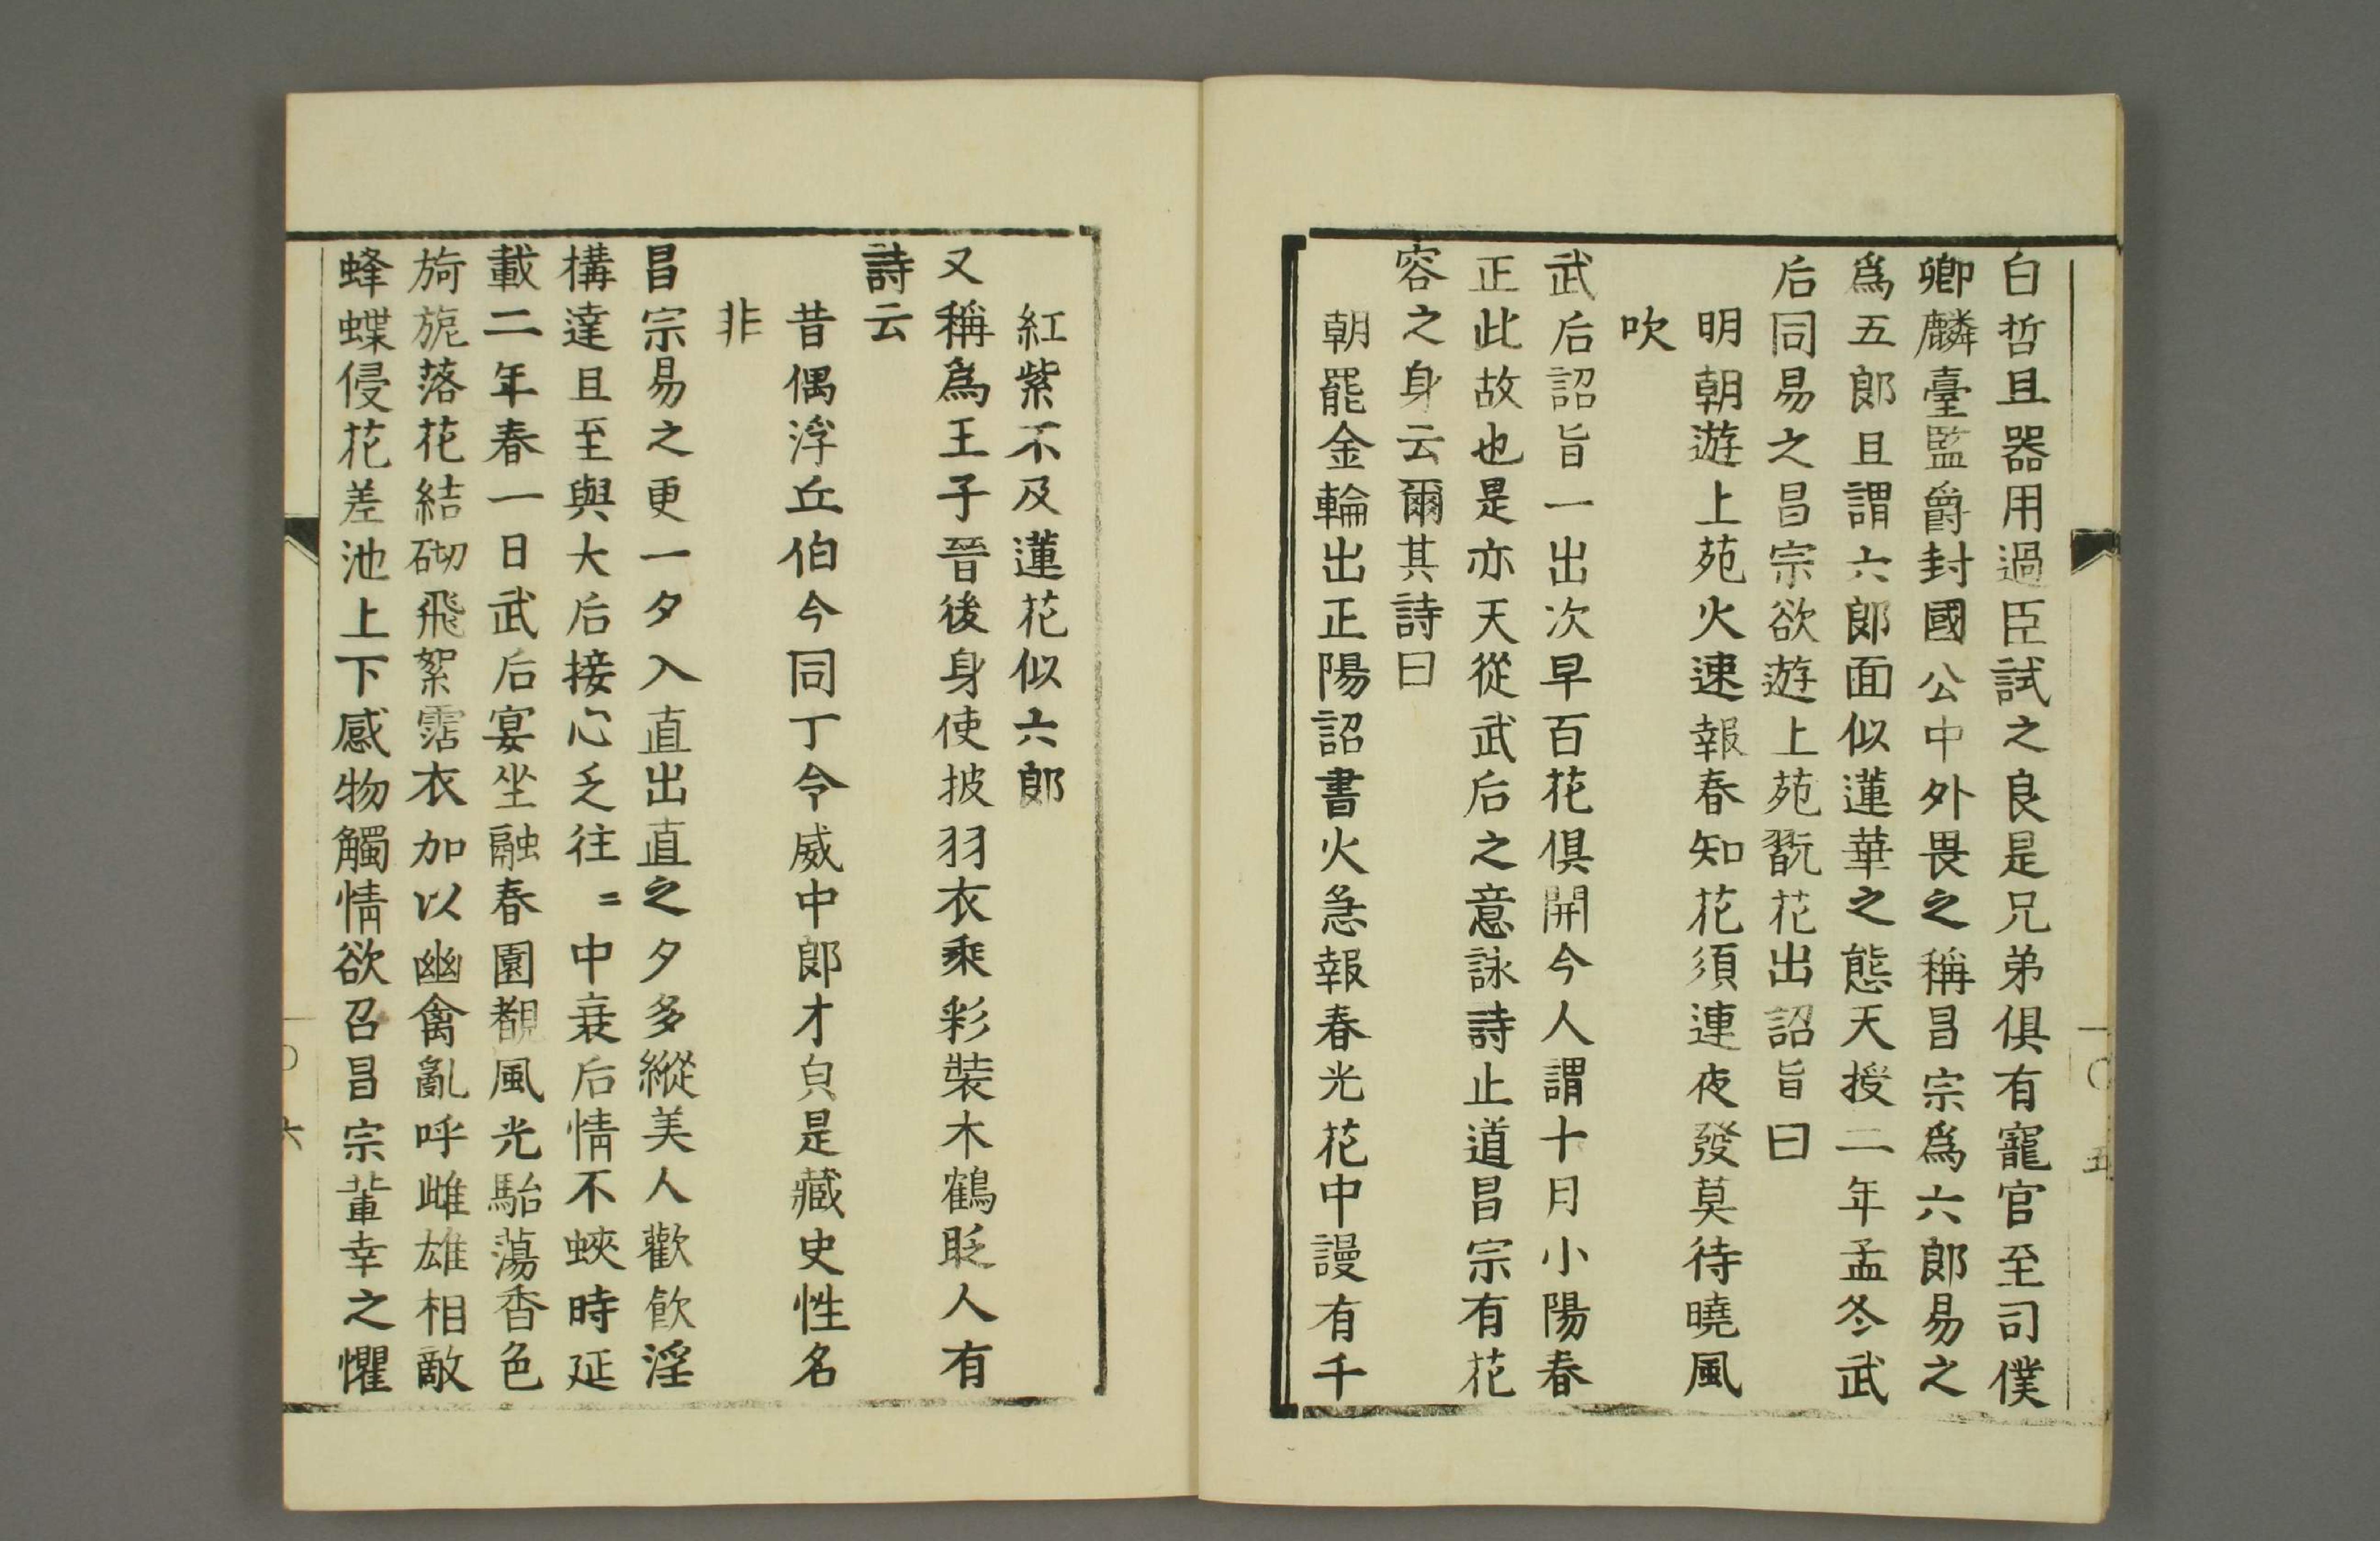 白哲且器用過臣試之良是兄弟俱有寵官至司僕
卿麟臺監爵封國公中外畏之稱昌宗爲六郎易之
爲五郎且謂六郎面似蓮華之態天授二年孟冬武
后同易之昌宗欲遊上苑翫花出詔旨曰
明朝遊上苑火速報春知花須連夜發莫待曉風
吹
武后詔旨一出次早百花俱開今人謂十月小陽春
正此故也是亦天從武后之意詠詩止道昌宗有花
容之身云爾其詩曰
朝罷金輪出正陽詔書火急報春光花中謾有千
紅紫不及蓮花似六郎
又稱爲王子晉後身使披羽衣乘彩裝木鶴眨人有
詩云
昔偶浮丘伯今同丁令威中郎才皃是藏史性名
非
昌宗易之更一夕入直出直之夕多縱美人歡飮淫
構達且至與大后接心乏往〻中衰后情不蛺時延
載二年春一日武后宴坐融春園覩風光駘蕩香色
旖旎落花結砌飛絮霑衣加以幽禽亂呼雌雄相敵
蜂蝶侵花差池上下感物觸情欲召昌宗輩幸之懼
一〇 五
一〇 六